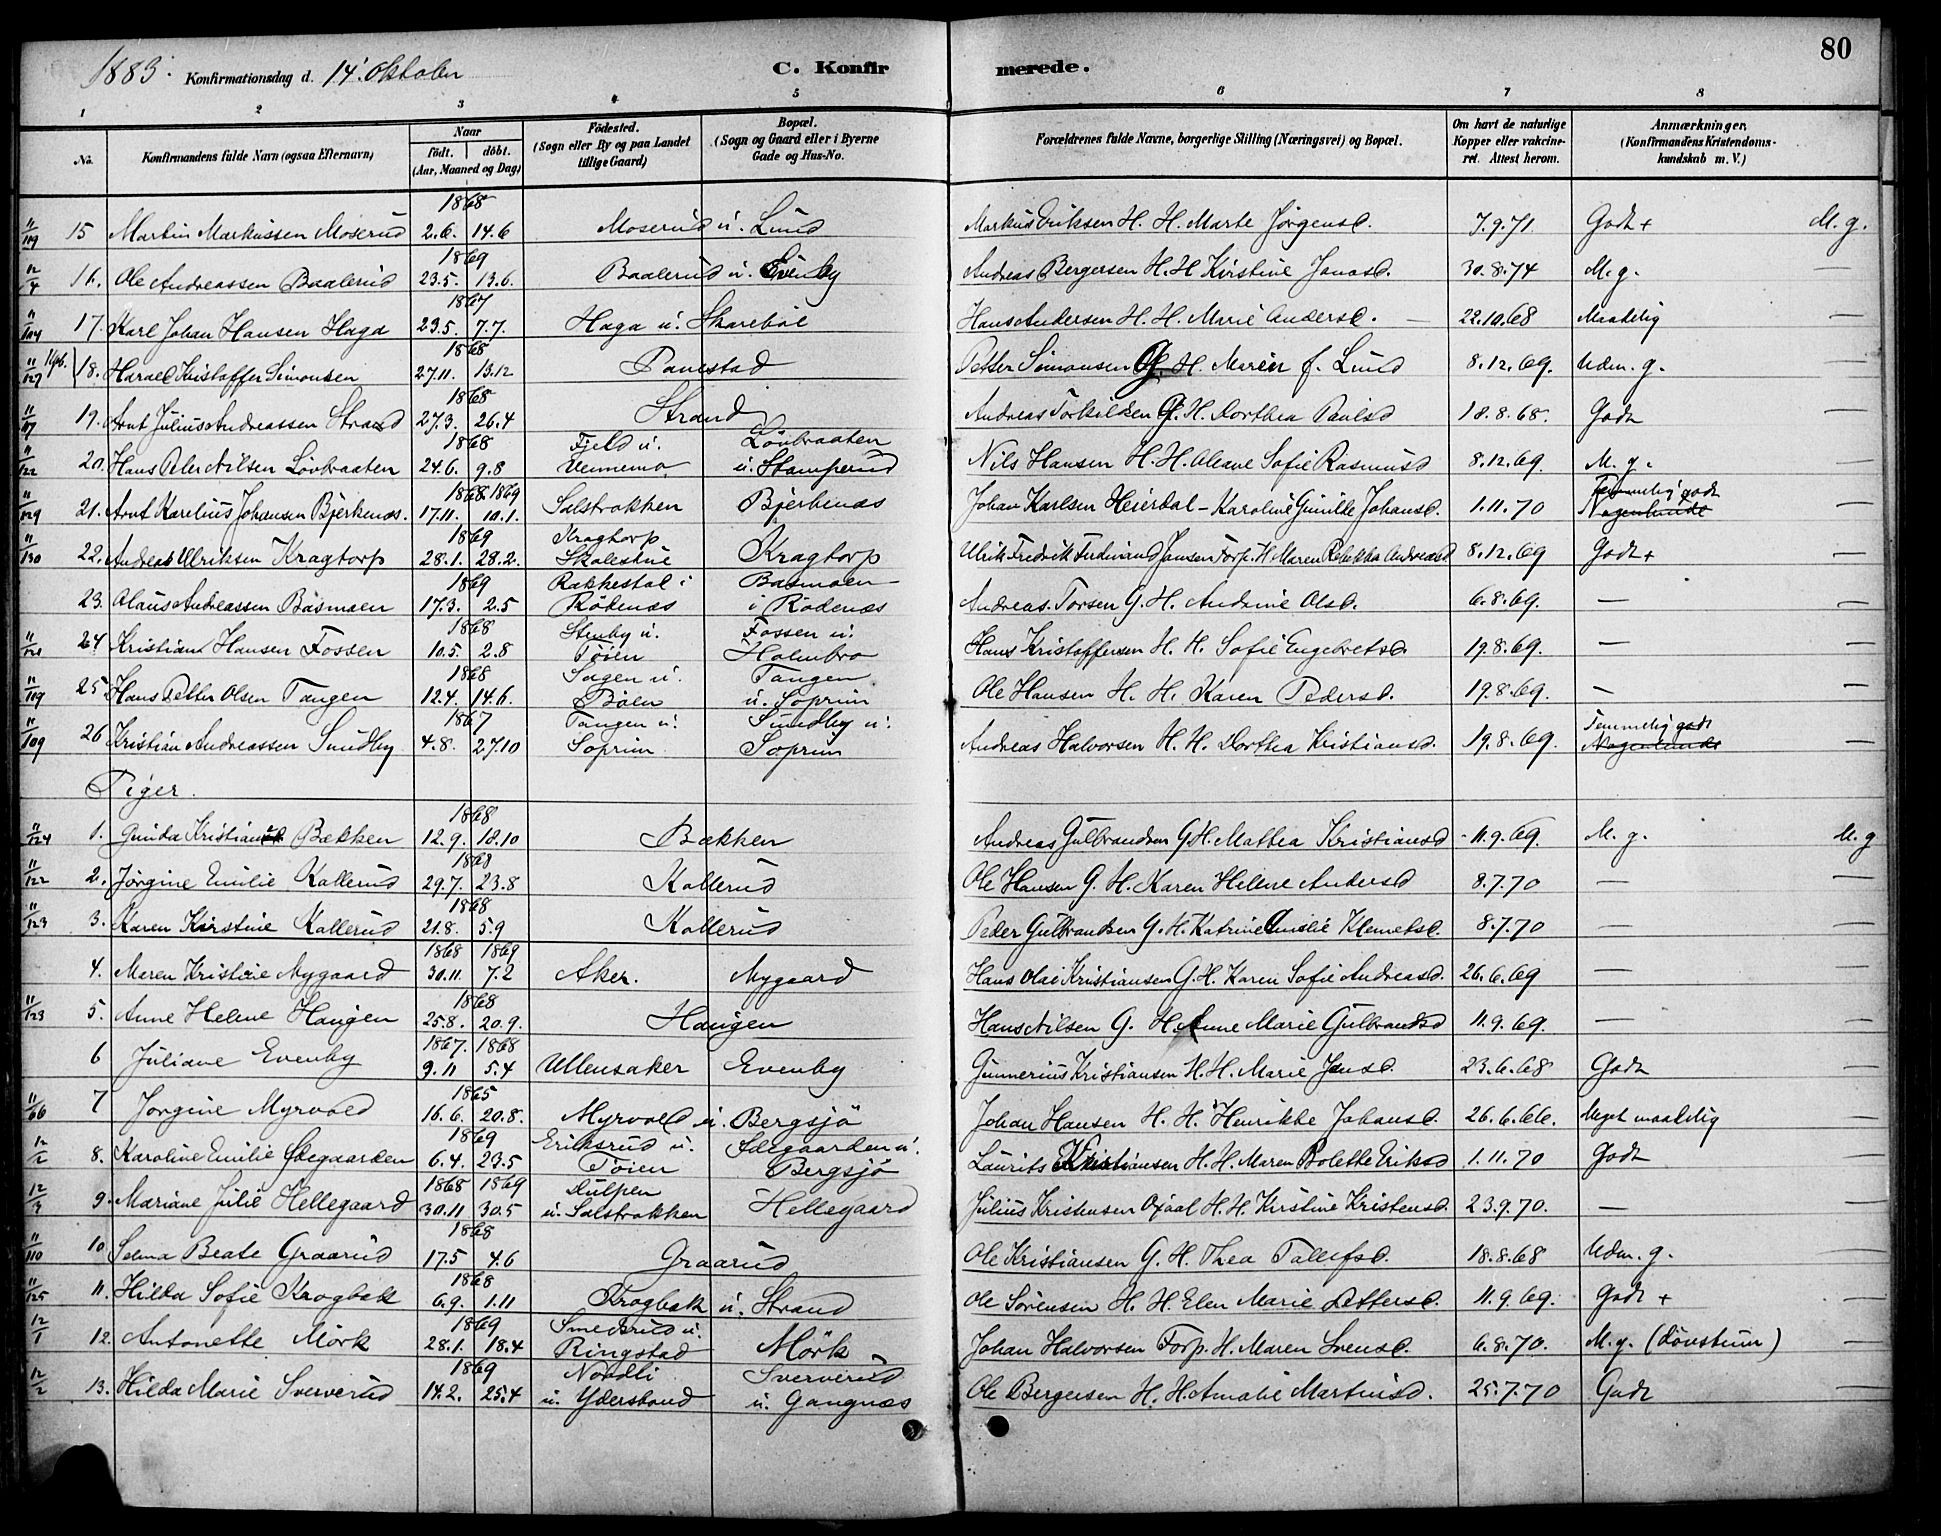 1883. Konfirmationsdag d. 14. Oktober C. Konfir merede. 80
1 2 3 4 5 6 7 8
No. Konfirmandens fulde Navn (ogsaa Efternavn) Naar født. døbt. (Aar, Maaned og Dag) Födested. (Sogn eller By og paa Landet tillige Gaard) Bopæl. (Sogn og Gaard eller i Byerne Gade og Hus-No. Forældrenes fulde Navne, borgerlige Stilling (Næringsvei) og Bopæl. Om havt de naturlige Kopper eller vakcineret. Attest herom. Anmærkninger. (Konfirmandens Kristendomskundskab m. V.)
1868
11/119 15 Martin Markussen Moserud 2.6. 14.6 Moserud u. Lund Markus Eriksen H. H. Marte Jörgensd. 7.9.71. Godt + M. g.
1869
12/4 16. Ole Andreassen Baalerud 23.5. 13.6. Baalerud u. Evenby Andreas Bergersen H. H Kirstine Jonasd. 30.8.74 M. g. —
1867
11/104 17. Karl Johan Hansen Haga 23.5. 7.7. Haga u. Skarebøl Hans Andersen H. H. Marie Andersd. — 22.10.68 Maadelig —
1868
11/127 18. Harald Kristoffer Simonsen 27.11. 13.12 Panestad Petter Simonsen G. H. Maren f. Lund 8.12.69. Udm. g. —
1868
11/117 19. Arnt Julius Andreassen Strand 27.3. 26.4 Strand Andreas Torkildsen G. H. Dorthea Paulsd 18.8.68. Godt —
1868 Fjeld u. Løvbraaten
11/122 20. Hans Peter Nilsen Lövbraaten 24.6. 9.8 Vennemo u. Stamperud Nils Hansen H. H. Oleane Sofie Rasmusd 8.12.69. M. g. —
1868 1869 Temmelig godt
11/129 21. Arnt Karelius Johansen Bjerkenæs. 17.11. 10.1. Salstrokken Bjerkenæs Johan Karlsen Heierdal - Karoline Gunille Johansd. 1.11.70 Nogenlunde —
1869 Kragtorp
11/130 22. Andreas Ulriksen Kragtorp 28.1. 28.2. Skolestue Kragtorp Ulrik Fredrik Ferdinand Jansen Forp. H. Maren Rebekka Andreasd 8.12.69 Godt + —
1869 Rakkestad i Basmoen
23. Olaus Andreassen Basmoen 17.3. 2.5 Rödenæs i Rödenæs Andreas Torsen G. H. Andrine Olsd. 6.8.69. — —
1868 Stenby u. Fossen u.
11/121 24 Kristian Hansen Fossen 10.5. 2.8 Töien Holmbro Hans Kristoffersen H. H. Sofie Engebretsd. 19.8.69. — —
1868 Sagen u. Tangen
11/119 25. Hans Petter Olsen Tangen 12.4. 14.6. Böen u. Soprim Ole Hansen H. H. Karen Pedersd. 19.8.69. — —
1867 Tangen u. Sundby u. Temmelig godt
11/109 26 Kristian Andreassen Sundby 4.8. 27.10 Soprim Soprim Andreas Halvorsen H. H. Dorthea Kristiansd. 19.8.69. Nogenlunde —
Piger.
1868
11/124 1. Gunda Kristiansd. Bækken 12.9. 18.10 Bækken Andreas Gulbrandsen G. H. Mathea Kristiansd - 11.9.69. M. g. M. g
1868
11/122 2. Jörgine Emilie Kallerud 29.7. 23.8 Kallerud Ole Hansen G. H. Karen Helene Andersd 8.7.70 — —
1868
11/123 3. Karen Kirstine Kallerud 21.8. 5.9 Kallerud Peder Gulbrandsen G. H. Katrine Emilie Klemetsd. 8.7.70 — —
1868 1869
4. Maren Kristine Nygaard 30.11. 7.2 Aker. Nygaard Hans Olai Kristiansen G. H. Karen Sofie Andreasd. 26.6.69 — —
1868
11/123 5. Anne Helene Haugen 25.8. 20.9. Haugen Hans Nilsen G. H. Anne Marie Gulbrandsd 11.9.69. — —
1867. 1868
6 Juliane Evenby 9.11 5.4 Ullensaker Evenby Gunnerius Kristiansen H. H. Marie Jensd. 23.6.68 Godt —
1865
11/66 7 Jorgine Myrvold 16.6. 20.8. Myrvold u. Bergsjö Johan Hansen H. H. Henrikke Johansd. 26.6.66. Meget maadelig —
1869 Eriksrud u. Ødegaarden u.
12/2 8. Karoline Emilie Ødegaarden 6.4. 23.5 Töien Bergsjö Laurits Kristiansen H. H. Maren Bolette Eriksd 1.11.70 Godt —
1868 1869 Kulpen
12/3 9. Mariane Julie Hellegaard 30.11 30.5 u. Salstrokken Hellegaard Julius Kristensen Oxaal H. H. Kirstine Kristensd. 23.9.70. — —
1868
11/110 10. Selma Beate Graarud 17.5 4.6 Graarud Ole Kristiansen G. H. Thea Tollefsd. 18.8.68 Udm. g. —
1868
11/125 11. Hilda Sofie Krogbæk 6.9. 1.11 Krogbæk u. Strand Ole Sörensen H. H. Elen Marie Pettersd. 11.9.69. Godt + —
1869 Smedsrud u.
12/1 12. Antonette Mörk 28.1. 18.4 Ringstad Mörk Johan Halvorsen Forp. H. Maren Svensd. 6.8.70. M. g. (Dövstum) —
1869 Nordli Sververud
12/2 13. Hilda Marie Sververud 14.2. 25.4 u. Yderstoud u. Gangnæs Ole Bergersen H. H. Amalie Martinsd. 25.7.70 Godt —